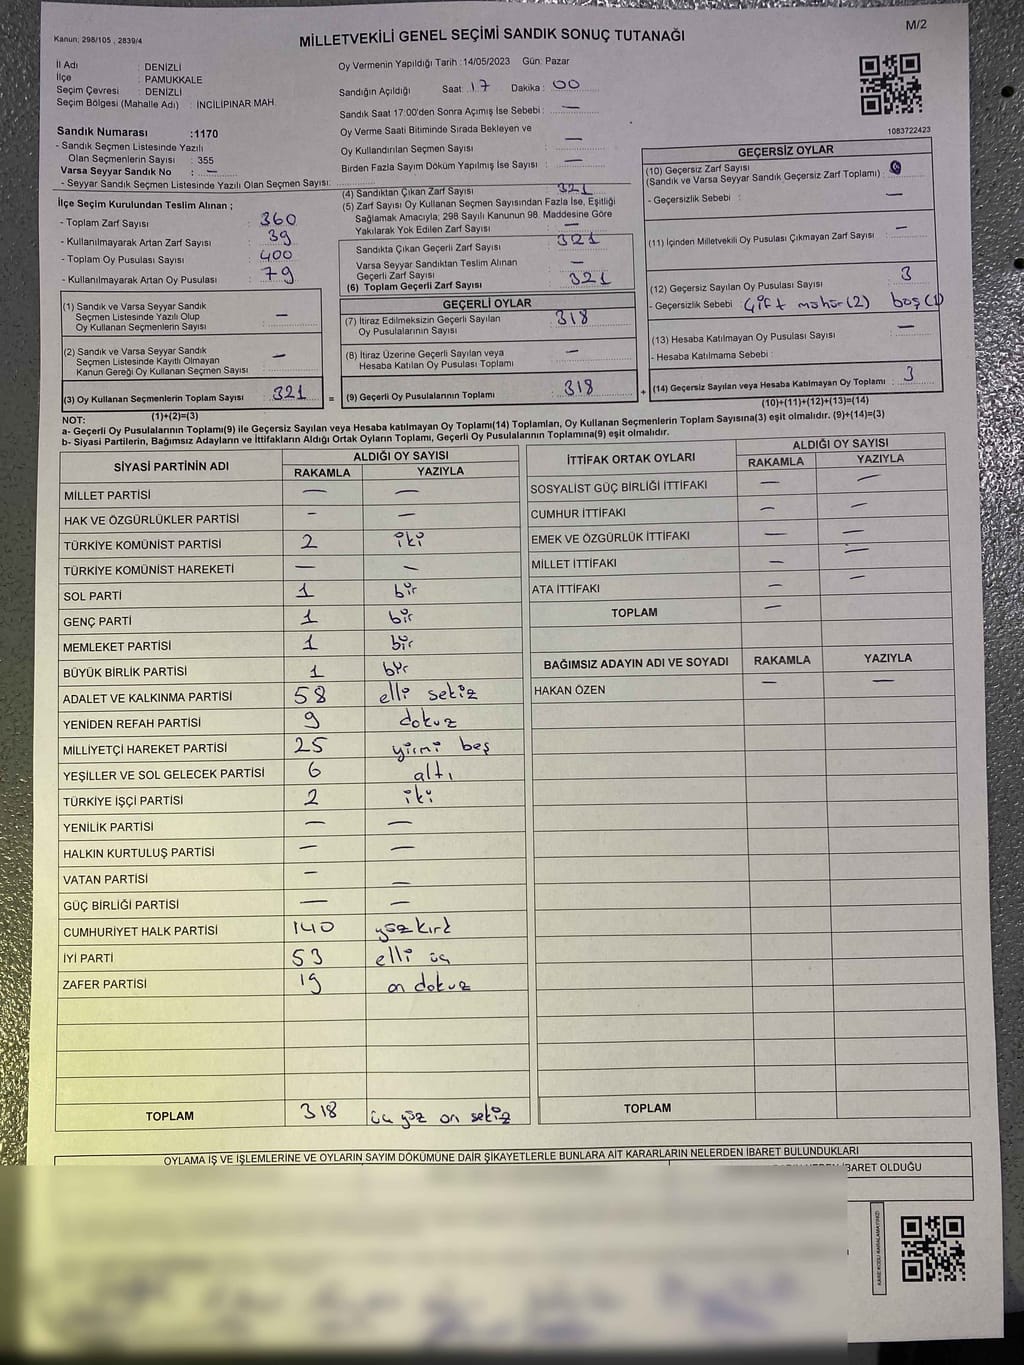 M/2
Kanun; 298/105 , 2839/4
MİLLETVEKİLİ GENEL SEÇİMİ SANDIK SONUÇ TUTANAĞI
İl Adı : DENİZLİ
İlçe : PAMUKKALE
Seçim Çevresi : DENİZLİ
Seçim Bölgesi (Mahalle Adı) : İNCİLİPINAR MAH.
Oy Vermenin Yapıldığı Tarih :14/05/2023 Gün: Pazar
Sandığın Açıldığı Saat : 17 Dakika : 00
Sandık Saat 17:00'den Sonra Açımış İse Sebebi : —
Oy Verme Saati Bitiminde Sırada Bekleyen ve
Oy Kullandırılan Seçmen Sayısı : —
Birden Fazla Sayım Döküm Yapılmış İse Sayısı : —
1083722423
Sandık Numarası :1170
- Sandık Seçmen Listesinde Yazılı
Olan Seçmenlerin Sayısı : 355
Varsa Seyyar Sandık No : —
- Seyyar Sandık Seçmen Listesinde Yazılı Olan Seçmen Sayısı:
İlçe Seçim Kurulundan Teslim Alınan ;
- Toplam Zarf Sayısı : 360
- Kullanılmayarak Artan Zarf Sayısı : 39
- Toplam Oy Pusulası Sayısı : 400
- Kullanılmayarak Artan Oy Pusulası : 79
(1) Sandık ve Varsa Seyyar Sandık
Seçmen Listesinde Yazılı Olup
Oy Kullanan Seçmenlerin Sayısı : —
(2) Sandık ve Varsa Seyyar Sandık
Seçmen Listesinde Kayıtlı Olmayan
Kanun Gereği Oy Kullanan Seçmen Sayısı : —
(3) Oy Kullanan Seçmenlerin Toplam Sayısı : 321 =
(1)+(2)=(3)
(4) Sandıktan Çıkan Zarf Sayısı : 321
(5) Zarf Sayısı Oy Kullanan Seçmen Sayısından Fazla İse, Eşitliği
Sağlamak Amacıyla; 298 Sayılı Kanunun 98. Maddesine Göre
Yakılarak Yok Edilen Zarf Sayısı : —
Sandıkta Çıkan Geçerli Zarf Sayısı : 321
Varsa Seyyar Sandıktan Teslim Alınan
Geçerli Zarf Sayısı : —
(6) Toplam Geçerli Zarf Sayısı : 321
GEÇERLİ OYLAR
(7) İtiraz Edilmeksizin Geçerli Sayılan
Oy Pusulalarının Sayısı : 318
(8) İtiraz Üzerine Geçerli Sayılan veya
Hesaba Katılan Oy Pusulası Toplamı : —
(9) Geçerli Oy Pusulalarının Toplamı : 318 +
GEÇERSİZ OYLAR
(10) Geçersiz Zarf Sayısı
(Sandık ve Varsa Seyyar Sandık Geçersiz Zarf Toplamı) :
- Geçersizlik Sebebi : —
(11) İçinden Milletvekili Oy Pusulası Çıkmayan Zarf Sayısı : —
(12) Geçersiz Sayılan Oy Pusulası Sayısı : 3
- Geçersizlik Sebebi : Çift mühür(2) boş(1)
(13) Hesaba Katılmayan Oy Pusulası Sayısı : —
- Hesaba Katılmama Sebebi :
(14) Geçersiz Sayılan veya Hesaba Katılmayan Oy Toplamı : 3
(10)+(11)+(12)+(13)=(14)
NOT:
a- Geçerli Oy Pusulalarının Toplamı(9) ile Geçersiz Sayılan veya Hesaba katılmayan Oy Toplamı(14) Toplamları, Oy Kullanan Seçmenlerin Toplam Sayısına(3) eşit olmalıdır. (9)+(14)=(3)
b- Siyasi Partilerin, Bağımsız Adayların ve İttifakların Aldığı Ortak Oyların Toplamı, Geçerli Oy Pusulalarının Toplamına(9) eşit olmalıdır.
SİYASİ PARTİNİN ADI ALDIĞI OY SAYISI
RAKAMLA YAZIYLA
MİLLET PARTİSİ — —
HAK VE ÖZGÜRLÜKLER PARTİSİ - —
TÜRKİYE KOMÜNİST PARTİSİ 2 iki
TÜRKİYE KOMÜNİST HAREKETİ — —
SOL PARTİ 1 bir
GENÇ PARTİ 1 bir
MEMLEKET PARTİSİ 1 bir
BÜYÜK BİRLİK PARTİSİ 1 bir
ADALET VE KALKINMA PARTİSİ 58 elli sekiz
YENİDEN REFAH PARTİSİ 9 dokuz
MİLLİYETÇİ HAREKET PARTİSİ 25 yirmi beş
YEŞİLLER VE SOL GELECEK PARTİSİ 6 altı
TÜRKİYE İŞÇİ PARTİSİ 2 iki
YENİLİK PARTİSİ — —
HALKIN KURTULUŞ PARTİSİ — —
VATAN PARTİSİ — —
GÜÇ BİRLİĞİ PARTİSİ — —
CUMHURİYET HALK PARTİSİ 140 yüz kırk
İYİ PARTİ 53 elli üç
ZAFER PARTİSİ 19 on dokuz
TOPLAM 318 üç yüz on sekiz
İTTİFAK ORTAK OYLARI ALDIĞI OY SAYISI
RAKAMLA YAZIYLA
SOSYALİST GÜÇ BİRLİĞİ İTTİFAKI — —
CUMHUR İTTİFAKI — —
EMEK VE ÖZGÜRLÜK İTTİFAKI — —
MİLLET İTTİFAKI — —
ATA İTTİFAKI — —
TOPLAM —
BAĞIMSIZ ADAYIN ADI VE SOYADI RAKAMLA YAZIYLA
HAKAN ÖZEN — —
TOPLAM
OYLAMA İŞ VE İŞLEMLERİNE VE OYLARIN SAYIM DÖKÜMÜNE DAİR ŞİKAYETLERLE BUNLARA AİT KARARLARIN NELERDEN İBARET BULUNDUKLARI
İBARET OLDUĞU
KARE KODU KARALAMAYINIZ!